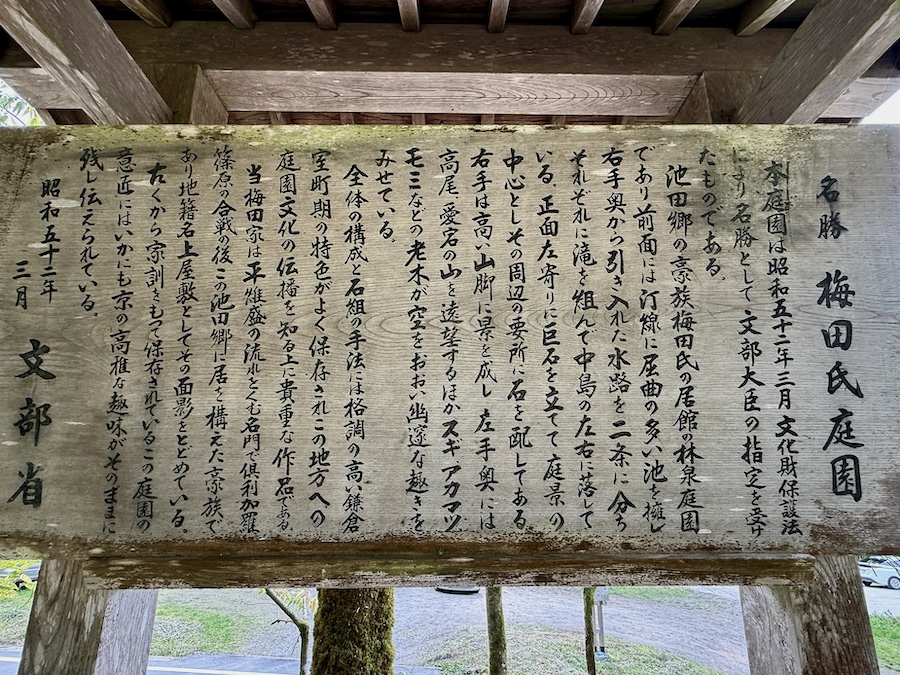 名勝 梅田氏庭園
本庭園は昭和五十二年三月文化財保護法
により名勝として文部大臣の指定を受け
たものである。
池田郷の豪族梅田氏の居館の林泉庭園
であり前面には汀線に屈曲の多い池を擁し
右手奥から引き入れた水路を二条に分ち
それぞれに滝を組んで中島の左右に落して
いる。正面左寄りに巨石を立てて庭景の
中心としその周辺の要所に石を配してある
右手は高い山脚に景を成し左手奥には
高尾、愛宕の山を遠望するほかスギアカマツ
モミなどの老木が空をおおい幽邃な趣きを
みせている。
全体の構成と石組の手法には格調の高い鎌倉
室町期の特色がよく保存されこの地方への
庭園文化の伝播を知る上に貴重な作品である。
当梅田家は平維盛の流れをくむ名門で倶利加羅
篠原の合戦の後この池田郷に居を構えた豪族で
あり地籍名上屋敷としてその面影をとどめている。
古くから家訓をもって保存されているこの庭園の
意匠にはいかにも京の高雅な趣味がそのままに
残し伝えられている。
昭和五十二年
三月
文部省